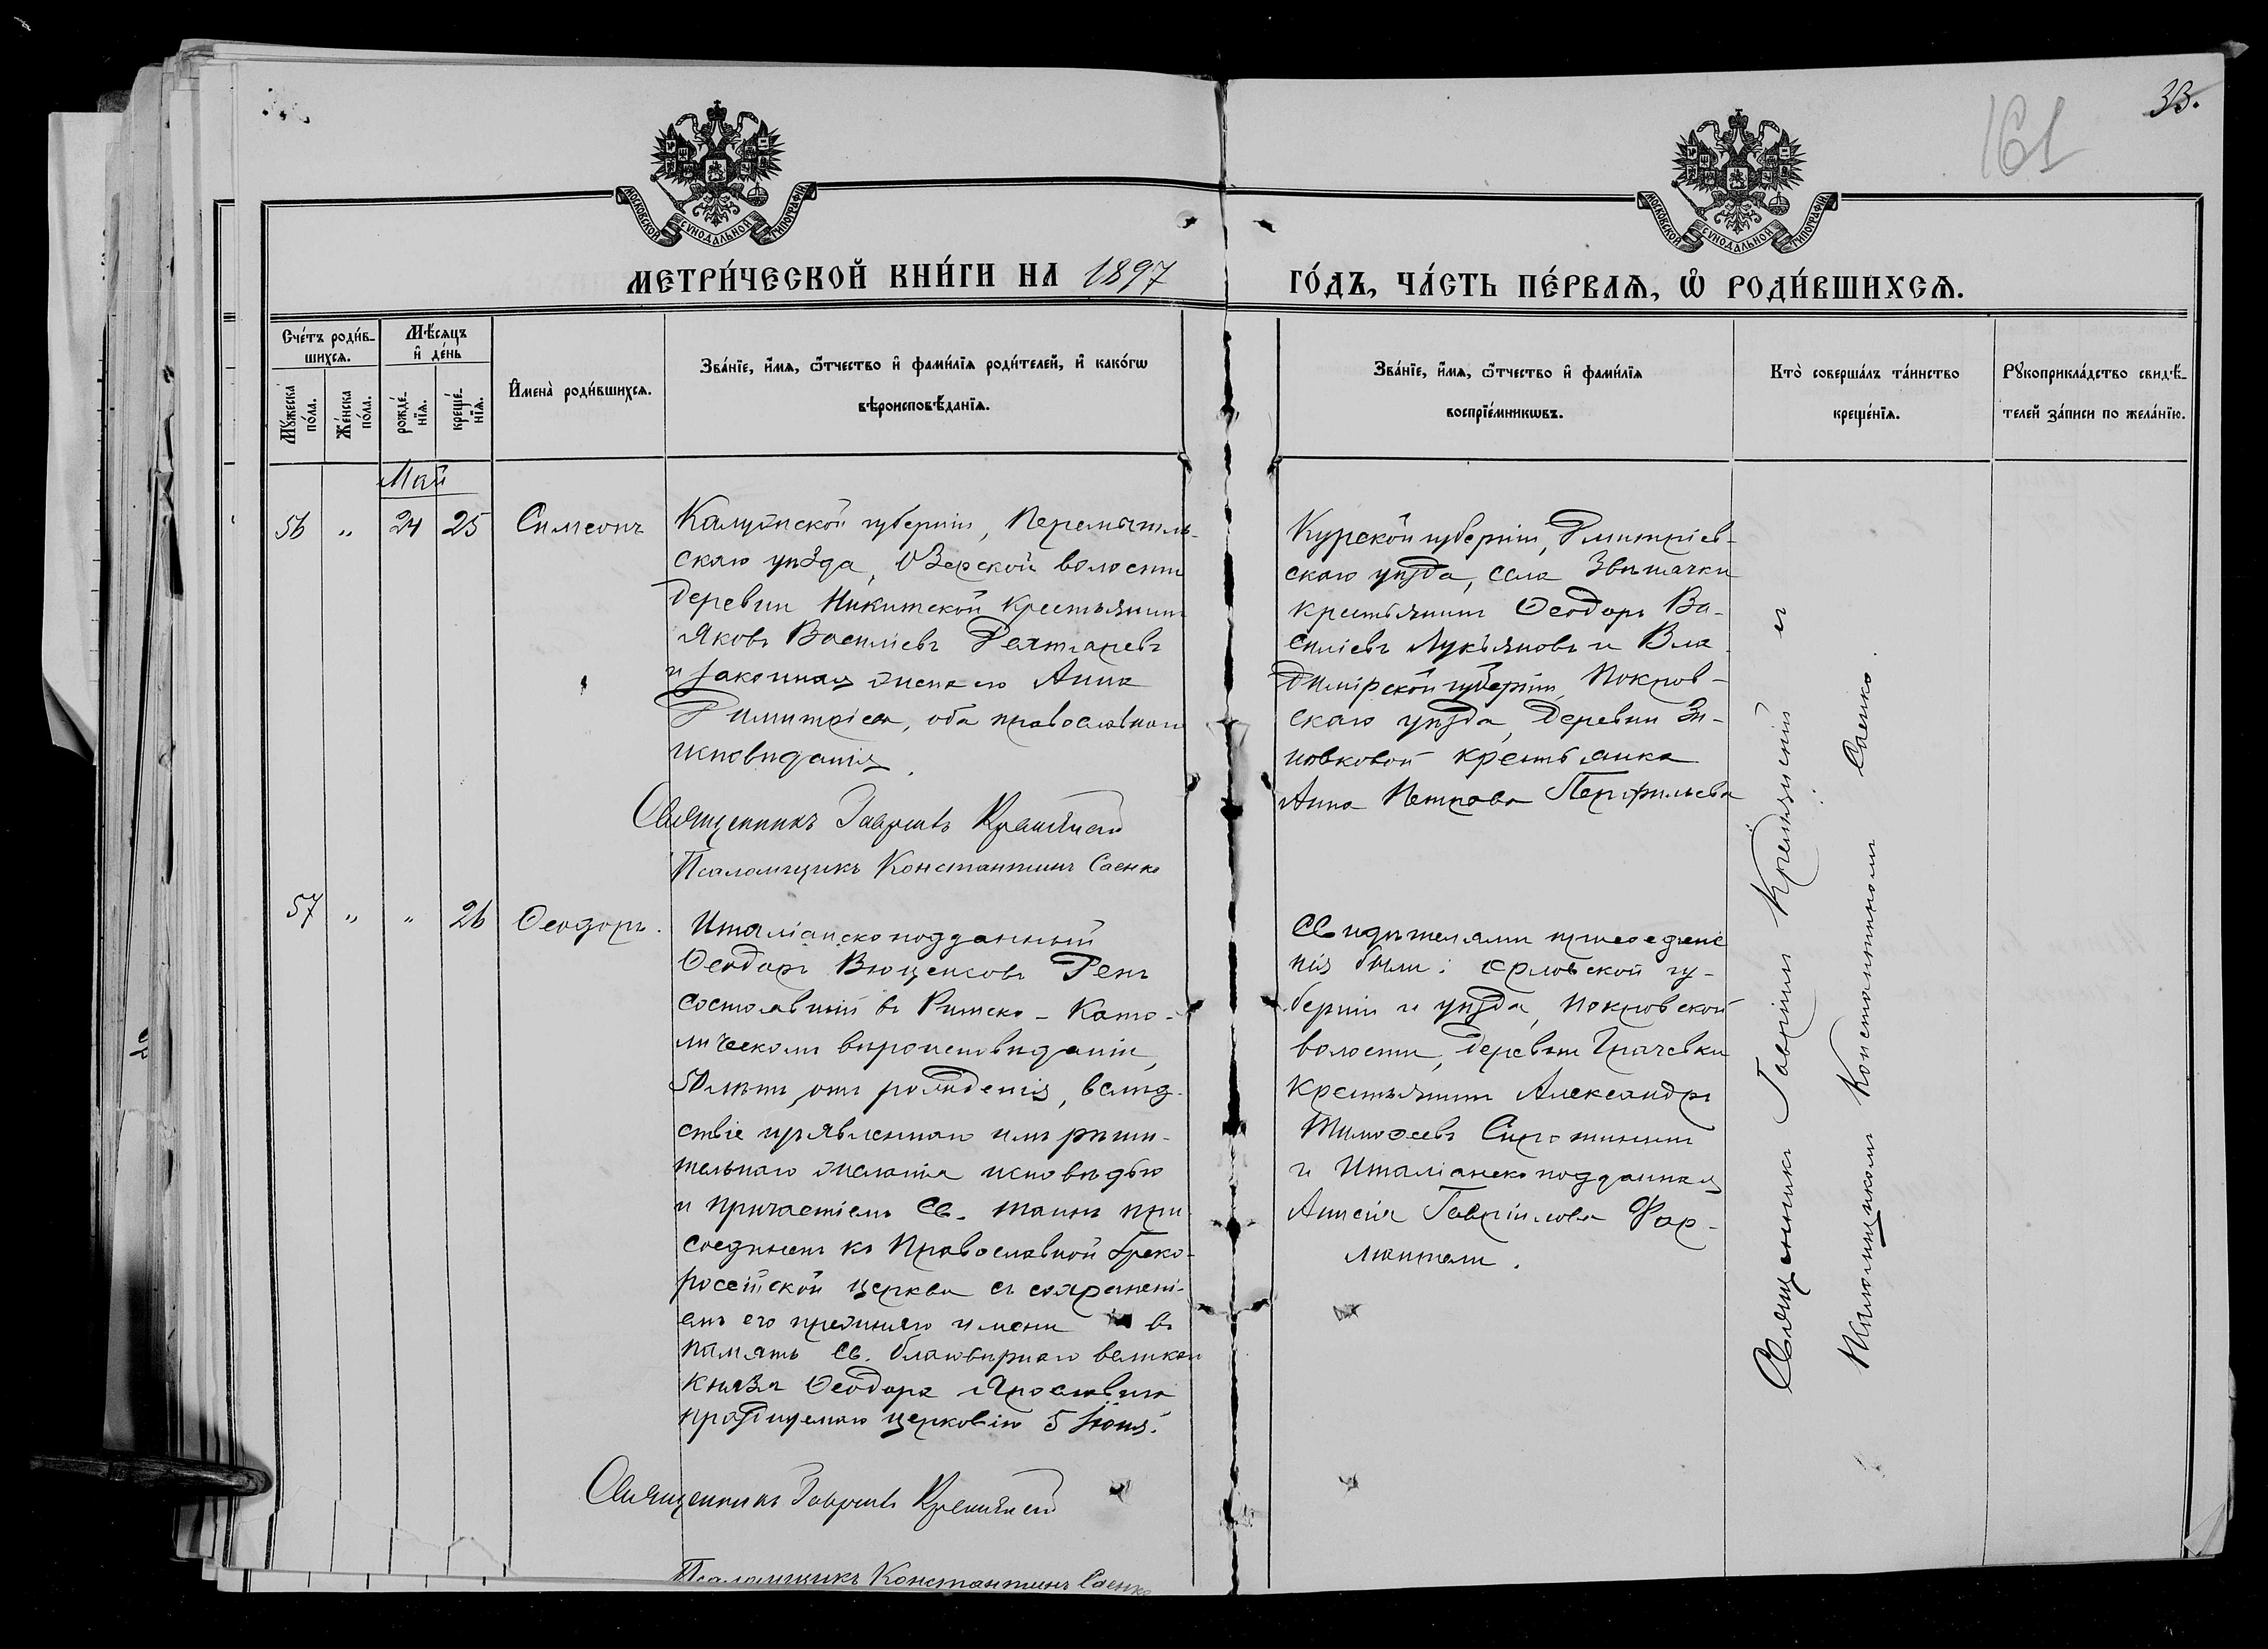 33.
161
МОСКОВСКОЙ СѴНОДАЛЬНОЙ ТИПОГРАФІИ
МОСКОВСКОЙ СѴНОДАЛЬНОЙ ТИПОГРАФІИ
МЕТРИ́ЧЕСКОЙ КНИ́ГИ НА 1897
ГО́ДЪ, ЧА́СТЬ ПЕ́РВАѦ, Ѽ РОДИ́ВШИХСѦ.
Сче́тъ роди́в-
шихсѧ.
Мꙋ́жеска
по́ла.
Же́нска
по́ла.
Мѣ́сѧцъ
и҆ де́нь
рожде́-
нїѧ.
креще́-
нїѧ.
И҆мена̀ роди́вшихсѧ.
Зва́нїе, и҆́мѧ, ѻ҆́тчество и҆ фами́лїѧ роди́телей, и҆ како́гѡ
вѣроисповѣ́данїѧ.
Зва́нїе, и҆́мѧ, ѻ҆́тчество и҆ фами́лїѧ
воспрїе́мникѡвъ.
Кто̀ соверша́лъ та́инство
креще́нїѧ.
Рꙋкоприкла́дство свидѣ́-
телей за́писи по жела́нїю.
Май
56 " 24 25 Симеонъ
Калужской губерніи, Перемышль-
скаго уѣзда, Озерской волости
деревни Никитской крестьянинъ
Яковъ Василіевъ
и законная жена его Анна
Димитріева, оба православнаго
исповѣданія.
Священникъ Гавріилъ
Псаломщикъ Константинъ Саенко
Курской губерніи, Дмитріев-
скаго уѣзда, села
крестьянинъ Ѳеодоръ Ва-
силіевъ Лукьяновъ и Вла-
димірской губерніи, Покров-
скаго уѣзда, деревни Зи-
новковой крестьянка
Анна Петрова Перфильева
57 " " 26 Ѳеодоръ.
Италіанскоподданный
Ѳеодоръ Рени
состоявшій въ Римско-Като-
лическомъ вѣроисповѣданіи,
50 лѣтъ отъ рожденія, вслѣд-
ствіе изъявленнаго имъ рѣши-
тельнаго желанія исповѣдью
и причастіемъ Св. Таинъ при-
соединенъ къ Православной Греко-
россійской церкви съ сохранені-
емъ его прежняго имени въ
память Св. благовѣрнаго великаго
князя Ѳеодора Ярославича
празднуемаго церковію 5 Іюня.
Священникъ Гавріилъ
Псаломщикъ Константинъ Саенко
Свидѣтелями присоедине-
нія были: Орловской гу-
берніи и уѣзда, Покровской
волости, деревни Грачевки
крестьянинъ Александръ
Тимоѳеевъ Сиротининъ
и Италіанскоподданная
Гавріилова Фар-
Священникъ Гавріилъ съ
Псаломщикомъ Константиномъ Саенко.